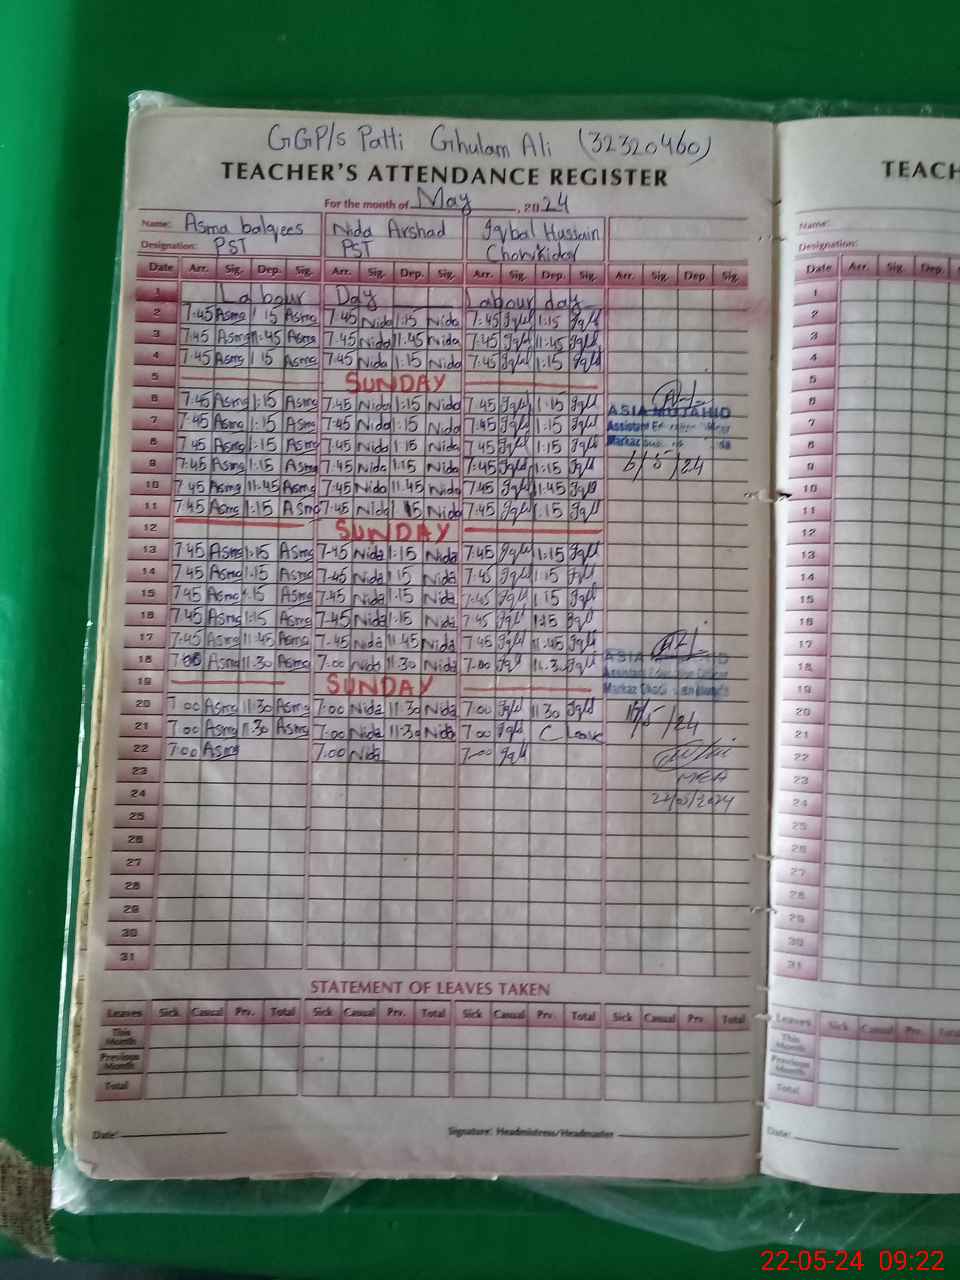 GGP/s Patti Ghulam Ali (32320460)
TEACHER'S ATTENDANCE REGISTER
For the month of May, 2024
Name: Asma balqees Nida Arshad Iqbal Hussain
Designation: PST PST Chowkidar
Date Arr. Sig. Dep. Sig. Arr. Sig. Dep. Sig. Arr. Sig. Dep. Sig. Arr. Sig. Dep. Sig.
1 Labour Day Labour day
2 7:45 Asma 1:15 Asma 7:45 Nida 1:15 Nida 7:45 Iqbl 1:15 Iqbl
3 7:45 Asma 11:45 Asma 7:45 Nida 11:45 Nida 7:45 Iqbl 11:45 Iqbl
4 7:45 Asma 1:15 Asma 7:45 Nida 1:15 Nida 7:45 Iqbl 1:15 Iqbl
5 SUNDAY
6 7:45 Asma 1:15 Asma 7:45 Nida 1:15 Nida 7:45 Iqbl 1:15 Iqbl
ASIA MUJAHID
7 7:45 Asma 1:15 Asma 7:45 Nida 1:15 Nida 7:45 Iqbl 1:15 Iqbl
Assistant
8 7:45 Asma 1:15 Asma 7:45 Nida 1:15 Nida 7:45 Iqbl 1:15 Iqbl
Markaz
9 7:45 Asma 1:15 Asma 7:45 Nida 1:15 Nida 7:45 Iqbl 1:15 Iqbl 6/5/24
10 7:45 Asma 11:45 Asma 7:45 Nida 11:45 Nida 7:45 Iqbl 11:45 Iqbl
11 7:45 Asma 1:15 Asma 7:45 Nida 1:15 Nida 7:45 Iqbl 1:15 Iqbl
12 SUNDAY
13 7:45 Asma 1:15 Asma 7:45 Nida 1:15 Nida 7:45 Iqbl 1:15 Iqbl
14 7:45 Asma 1:15 Asma 7:45 Nida 1:15 Nida 7:45 Iqbl 1:15 Iqbl
15 7:45 Asma 1:15 Asma 7:45 Nida 1:15 Nida 7:45 Iqbl 1:15 Iqbl
16 7:45 Asma 1:15 Asma 7:45 Nida 1:15 Nida 7:45 Iqbl 1:15 Iqbl
17 7:45 Asma 11:45 Asma 7:45 Nida 11:45 Nida 7:45 Iqbl 11:45 Iqbl
18 7:00 Asma 11:30 Asma 7:00 Nida 11:30 Nida 7:00 Iqbl 11:30 Iqbl
ASIA
Assistant Education Officer
19 SUNDAY
Markaz
20 7:00 Asma 11:30 Asma 7:00 Nida 11:30 Nida 7:00 Iqbl 11:30 Iqbl
21 7:00 Asma 11:30 Asma 7:00 Nida 11:30 Nida 7:00 Iqbl C Leave /5/24
22 7:00 Asma 7:00 Nida 7:00 Iqbl
23 MEA
24 22/05/2024
25
26
27
28
29
30
31
STATEMENT OF LEAVES TAKEN
Leaves Sick Casual Prv. Total Sick Casual Prv. Total Sick Casual Prv. Total Sick Casual Prv. Total
This Month
Previous Month
Total
Date: Signature: Headmistress/Headmaster
TEACH
Name:
Designation:
Date Arr. Sig. Dep.
1
2
3
4
5
6
7
8
9
10
11
12
13
14
15
16
17
18
19
20
21
22
23
24
25
26
27
28
29
30
31
Leaves Sick Casual Prv.
This Month
Previous Month
Total
Date:
22-05-24 09:22